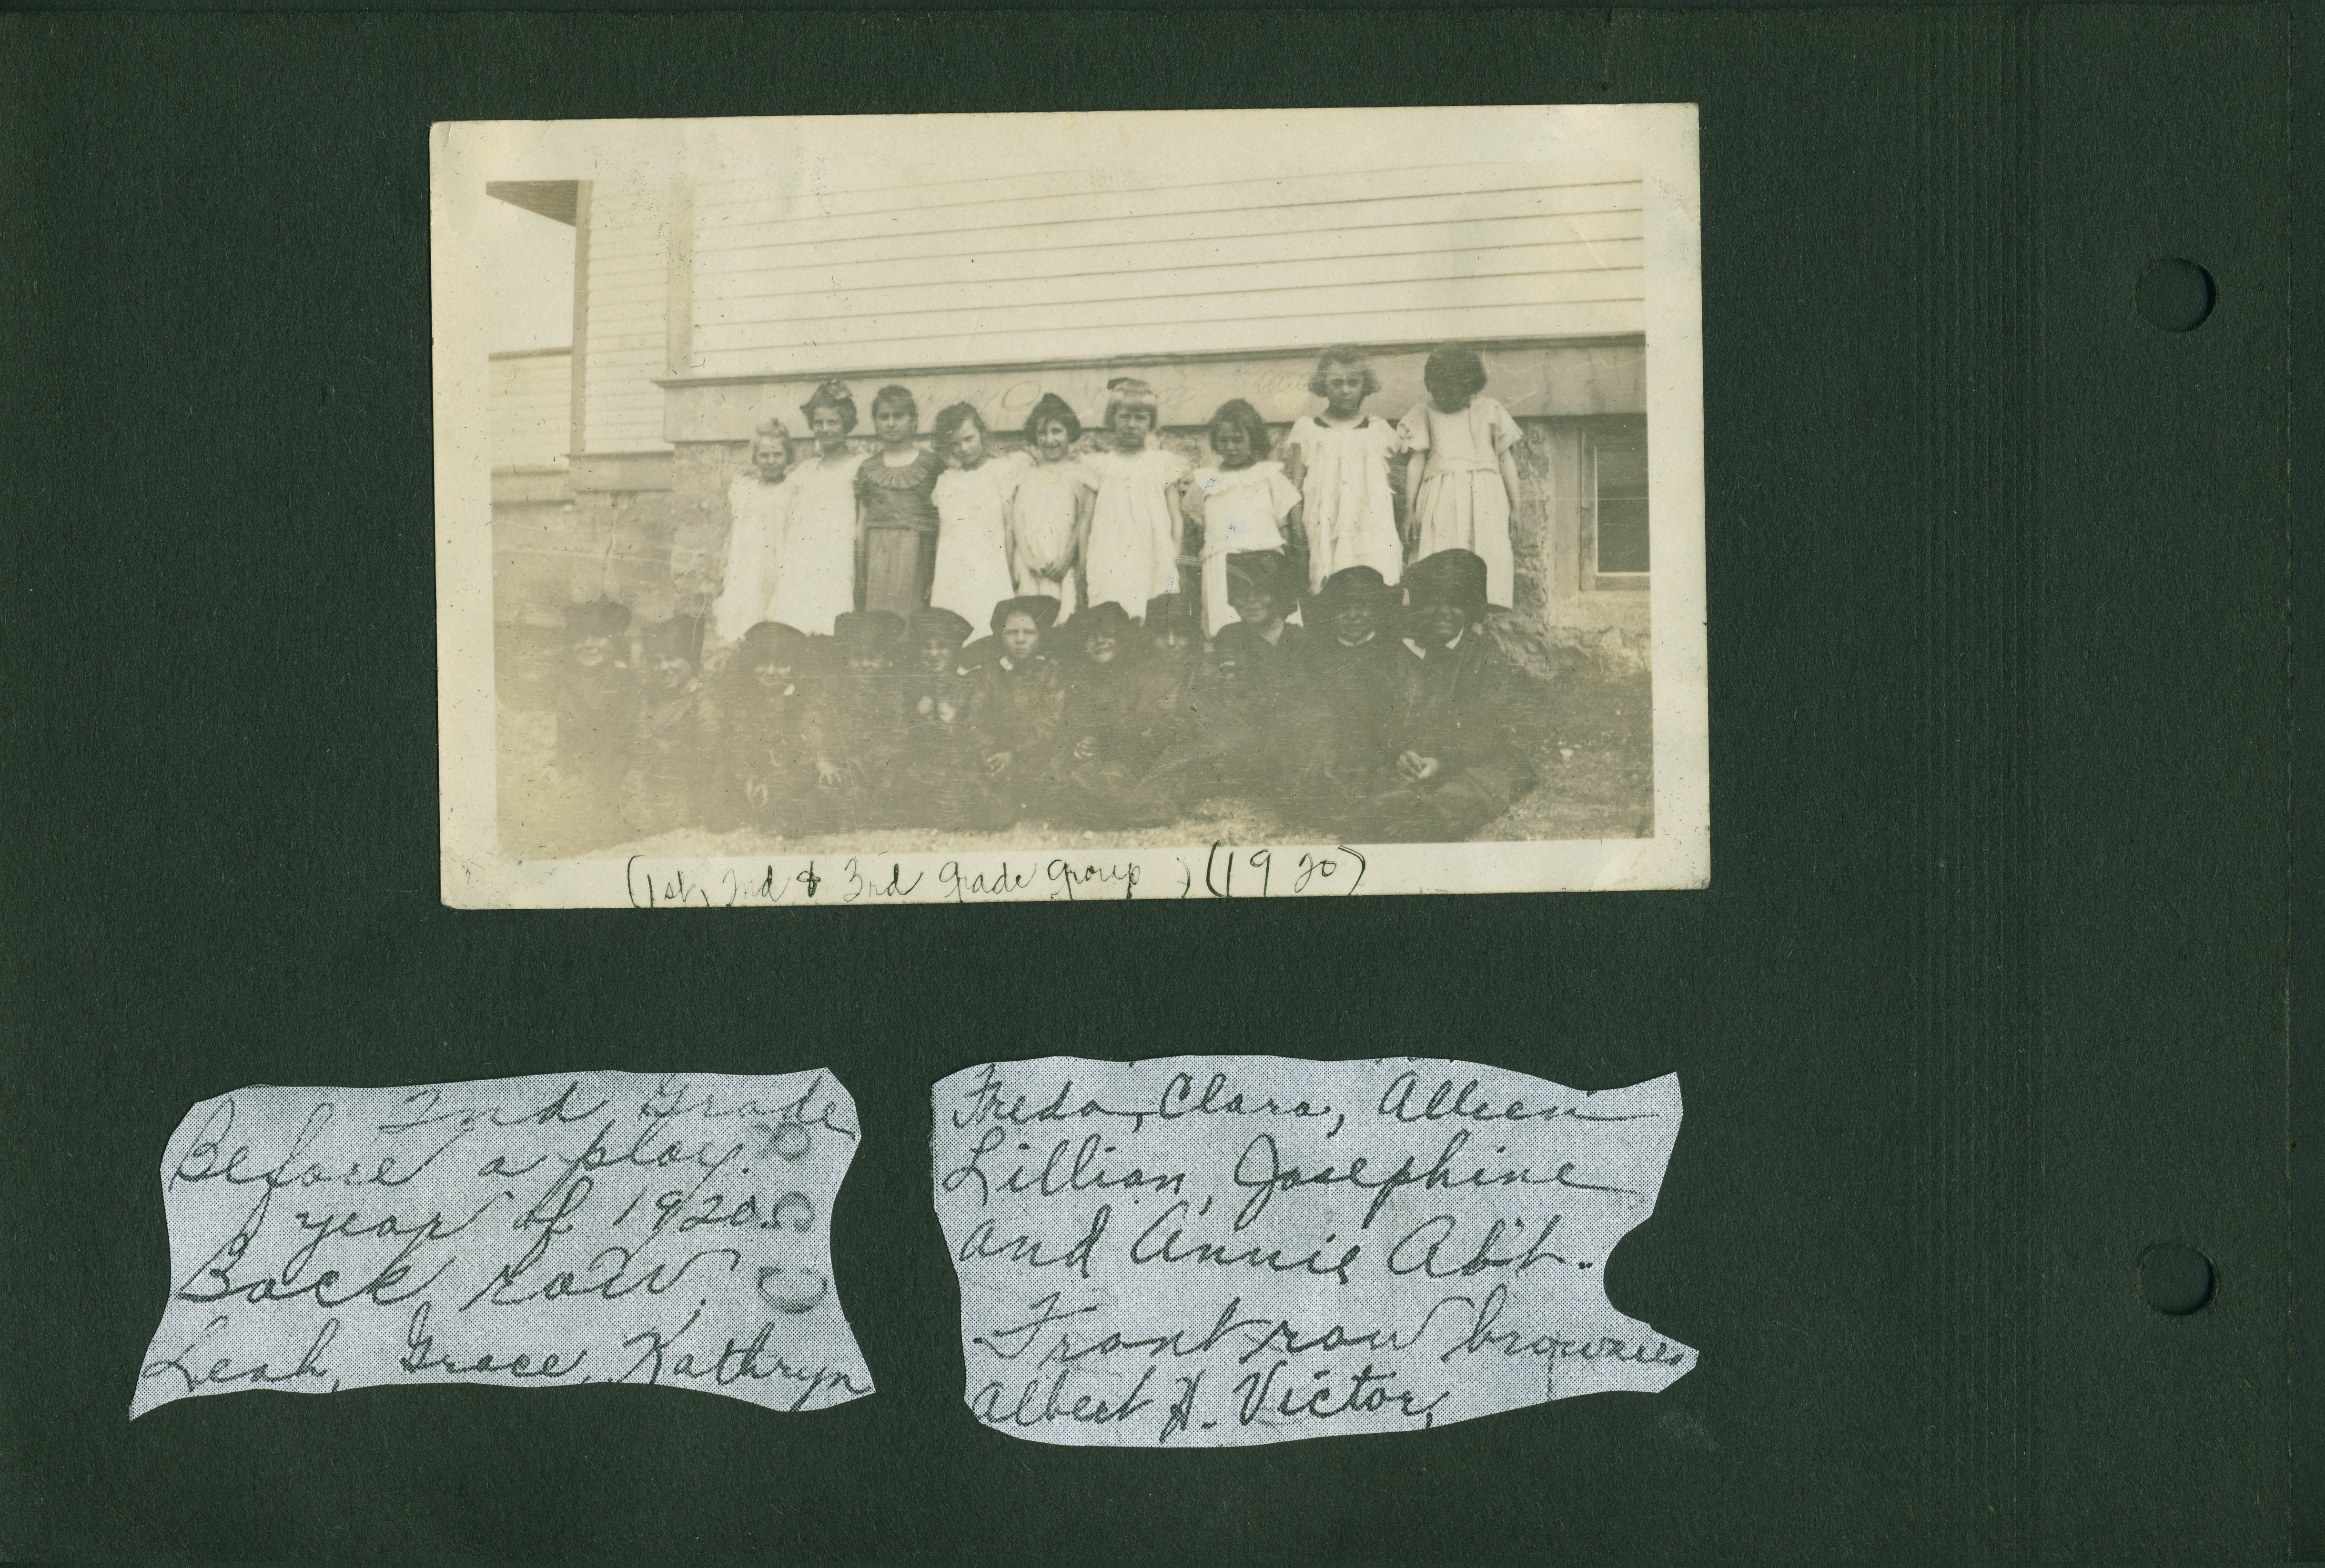 (1st, 2nd & 3rd Grade Group ) (1920)
2nd Grade
Before a play.
year of 1920.
Back row,
Leah, Grace, Kathryn
Freda, Clara, Alleen
Lillian, Josephine
and Annie Abt.
Front row brownies
Albert H. Victor,